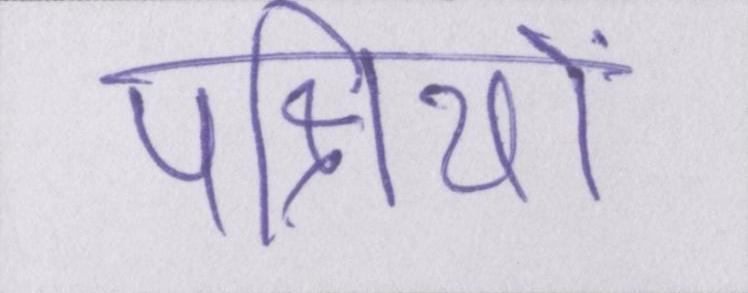 पक्षियों